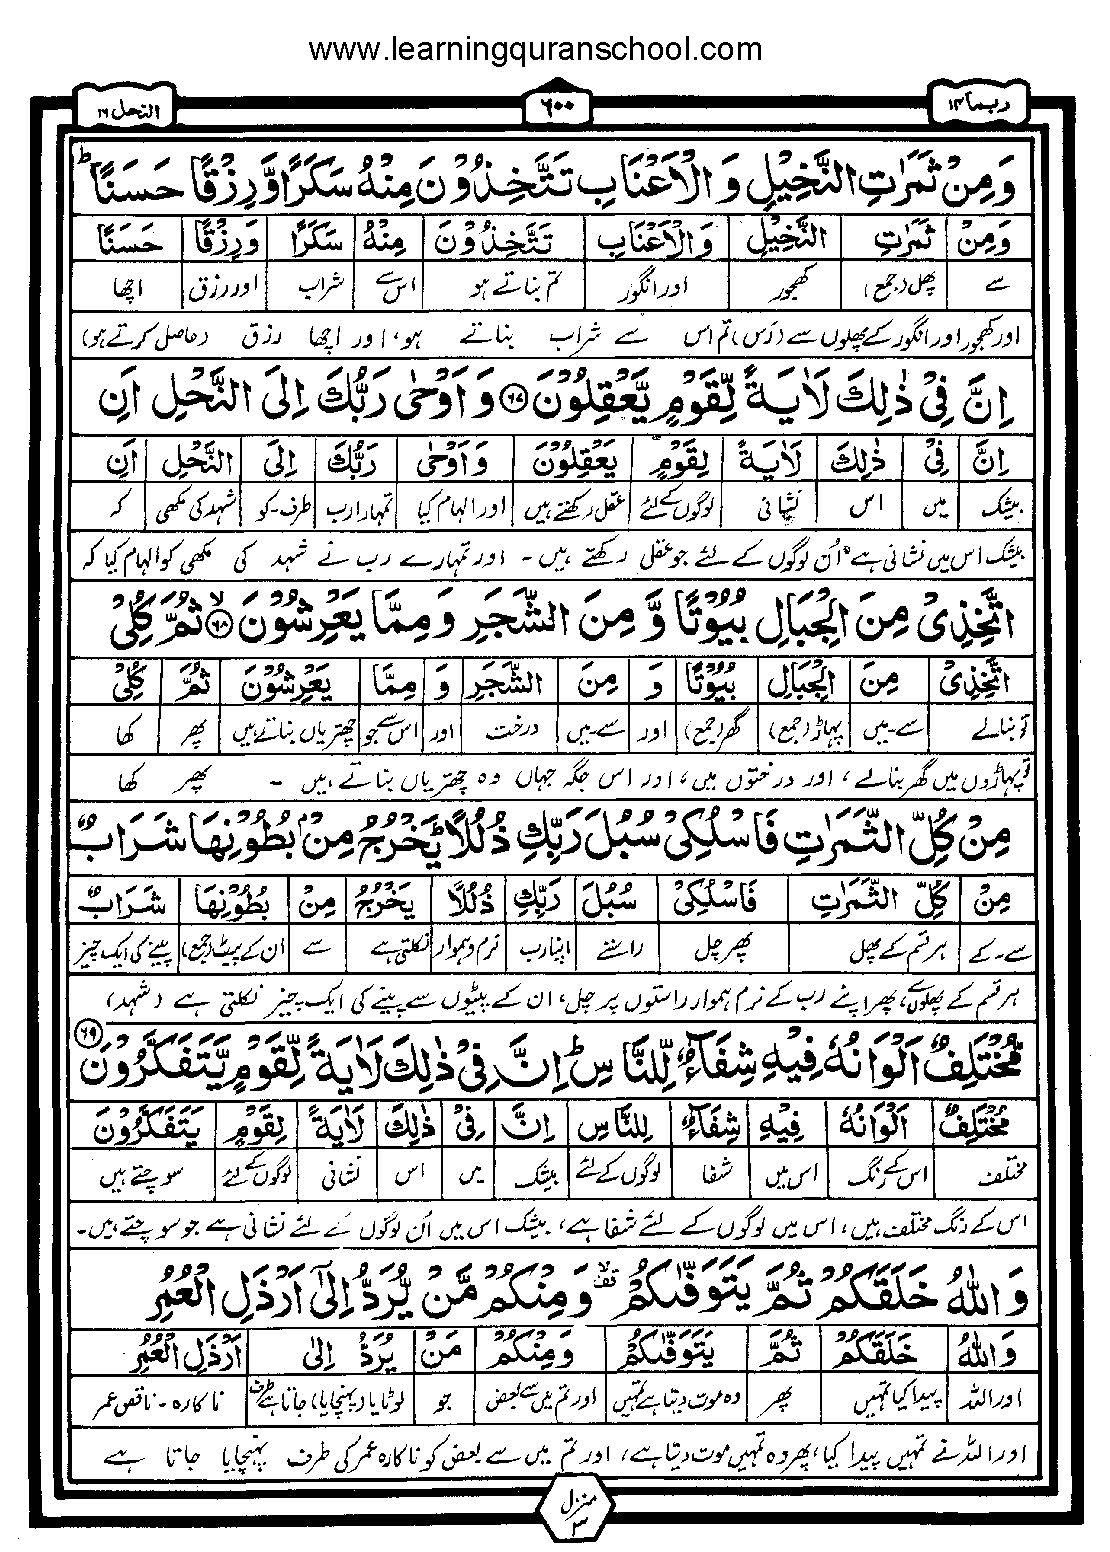 www.learningquranschool.com
ربما ۱۴ ۶۰۰ النحل ۱۶
وَمِنْ ثَمَرٰتِ النَّخِيْلِ وَالْاَعْنَابِ تَتَّخِذُوْنَ مِنْهُ سَكَرًا وَّرِزْقًا حَسَنًا ؕ
وَمِنْ ثَمَرٰتِ النَّخِيْلِ وَالْاَعْنَابِ تَتَّخِذُوْنَ مِنْهُ سَكَرًا وَرِزْقًا حَسَنًا
سے پھل (جمع) کھجور اور انگور تم بناتے ہو اس سے شراب اور رزق اچھا
اور کھجور اور انگور کے پھلوں سے (رس) تم اس سے شراب بناتے ہو، اور اچھا رزق (حاصل کرتے ہو)
اِنَّ فِيْ ذٰلِكَ لَاٰيَةً لِّقَوْمٍ يَّعْقِلُوْنَ ۶۷ وَاَوْحٰى رَبُّكَ اِلَى النَّحْلِ اَنِ
اِنَّ فِيْ ذٰلِكَ لَاٰيَةً لِقَوْمٍ يَعْقِلُوْنَ وَاَوْحٰى رَبُّكَ اِلَى النَّحْلِ اَنِ
بیشک میں اس نشانی لوگوں کے لئے عقل رکھتے ہیں اور الہام کیا تمہارا رب طرف۔کو شہد کی مکھی کہ
بیشک اس میں نشانی ہے اُن لوگوں کے لئے جو عقل رکھتے ہیں۔ اور تمہارے رب نے شہد کی مکھی کو الہام کیا کہ
اتَّخِذِيْ مِنَ الْجِبَالِ بُيُوْتًا وَّمِنَ الشَّجَرِ وَمِمَّا يَعْرِشُوْنَ ۶۸ ۙ ثُمَّ كُلِيْ
اتَّخِذِيْ مِنَ الْجِبَالِ بُيُوْتًا وَ مِنَ الشَّجَرِ وَ مِمَّا يَعْرِشُوْنَ ثُمَّ كُلِيْ
تو بنا لے سے۔میں پہاڑ (جمع) گھر (جمع) اور سے۔میں درخت اور اس سے جو چھتریاں بناتے ہیں پھر کھا
تو پہاڑوں میں گھر بنا لے، اور درختوں میں، اور اس جگہ جہاں وہ چھتریاں بناتے ہیں۔ پھر کھا
مِنْ كُلِّ الثَّمَرٰتِ فَاسْلُكِيْ سُبُلَ رَبِّكِ ذُلُلًا ؕ يَخْرُجُ مِنْۢ بُطُوْنِهَا شَرَابٌ
مِنْ كُلِّ الثَّمَرٰتِ فَاسْلُكِيْ سُبُلَ رَبِّكِ ذُلُلًا يَخْرُجُ مِنْ بُطُوْنِهَا شَرَابٌ
سے۔کے ہر قسم کے پھل پھر چل راستے اپنا رب نرم و ہموار نکلتی ہے سے ان کے پیٹ (جمع) پینے کی ایک چیز
ہر قسم کے پھلوں سے، پھر اپنے رب کے نرم ہموار راستوں پر چل، ان کے پیٹوں سے پینے کی ایک چیز نکلتی ہے (شہد)
مُّخْتَلِفٌ اَلْوَانُهٗ فِيْهِ شِفَآءٌ لِّلنَّاسِ ؕ اِنَّ فِيْ ذٰلِكَ لَاٰيَةً لِّقَوْمٍ يَّتَفَكَّرُوْنَ ۶۹
مُخْتَلِفٌ اَلْوَانُهٗ فِيْهِ شِفَآءٌ لِلنَّاسِ اِنَّ فِيْ ذٰلِكَ لَاٰيَةً لِقَوْمٍ يَتَفَكَّرُوْنَ
مختلف اس کے رنگ اس میں شفا لوگوں کے لئے بیشک میں اس نشانی لوگوں کے لئے سوچتے ہیں
اس کے رنگ مختلف ہیں، اس میں لوگوں کے لئے شفا ہے، بیشک اس میں اُن لوگوں کے لئے نشانی ہے جو سوچتے ہیں۔
وَاللّٰهُ خَلَقَكُمْ ثُمَّ يَتَوَفّٰىكُمْ ۙ قف وَمِنْكُمْ مَّنْ يُّرَدُّ اِلٰٓى اَرْذَلِ الْعُمُرِ
وَاللّٰهُ خَلَقَكُمْ ثُمَّ يَتَوَفّٰىكُمْ وَمِنْكُمْ مَنْ يُرَدُّ اِلٰى اَرْذَلِ الْعُمُرِ
اور اللہ پیدا کیا تمہیں پھر وہ موت دیتا ہے تمہیں اور تم میں سے بعض جو لوٹایا (پہنچایا) جاتا ہے طرف ناکارہ۔ناقص عمر
اور اللہ نے تمہیں پیدا کیا، پھر وہ تمہیں موت دیتا ہے، اور تم میں سے بعض کو ناکارہ عمر کی طرف پہنچایا جاتا ہے
منزل ۳